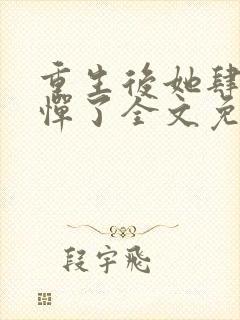 重生後她肆
憚了全文免
段宇飛